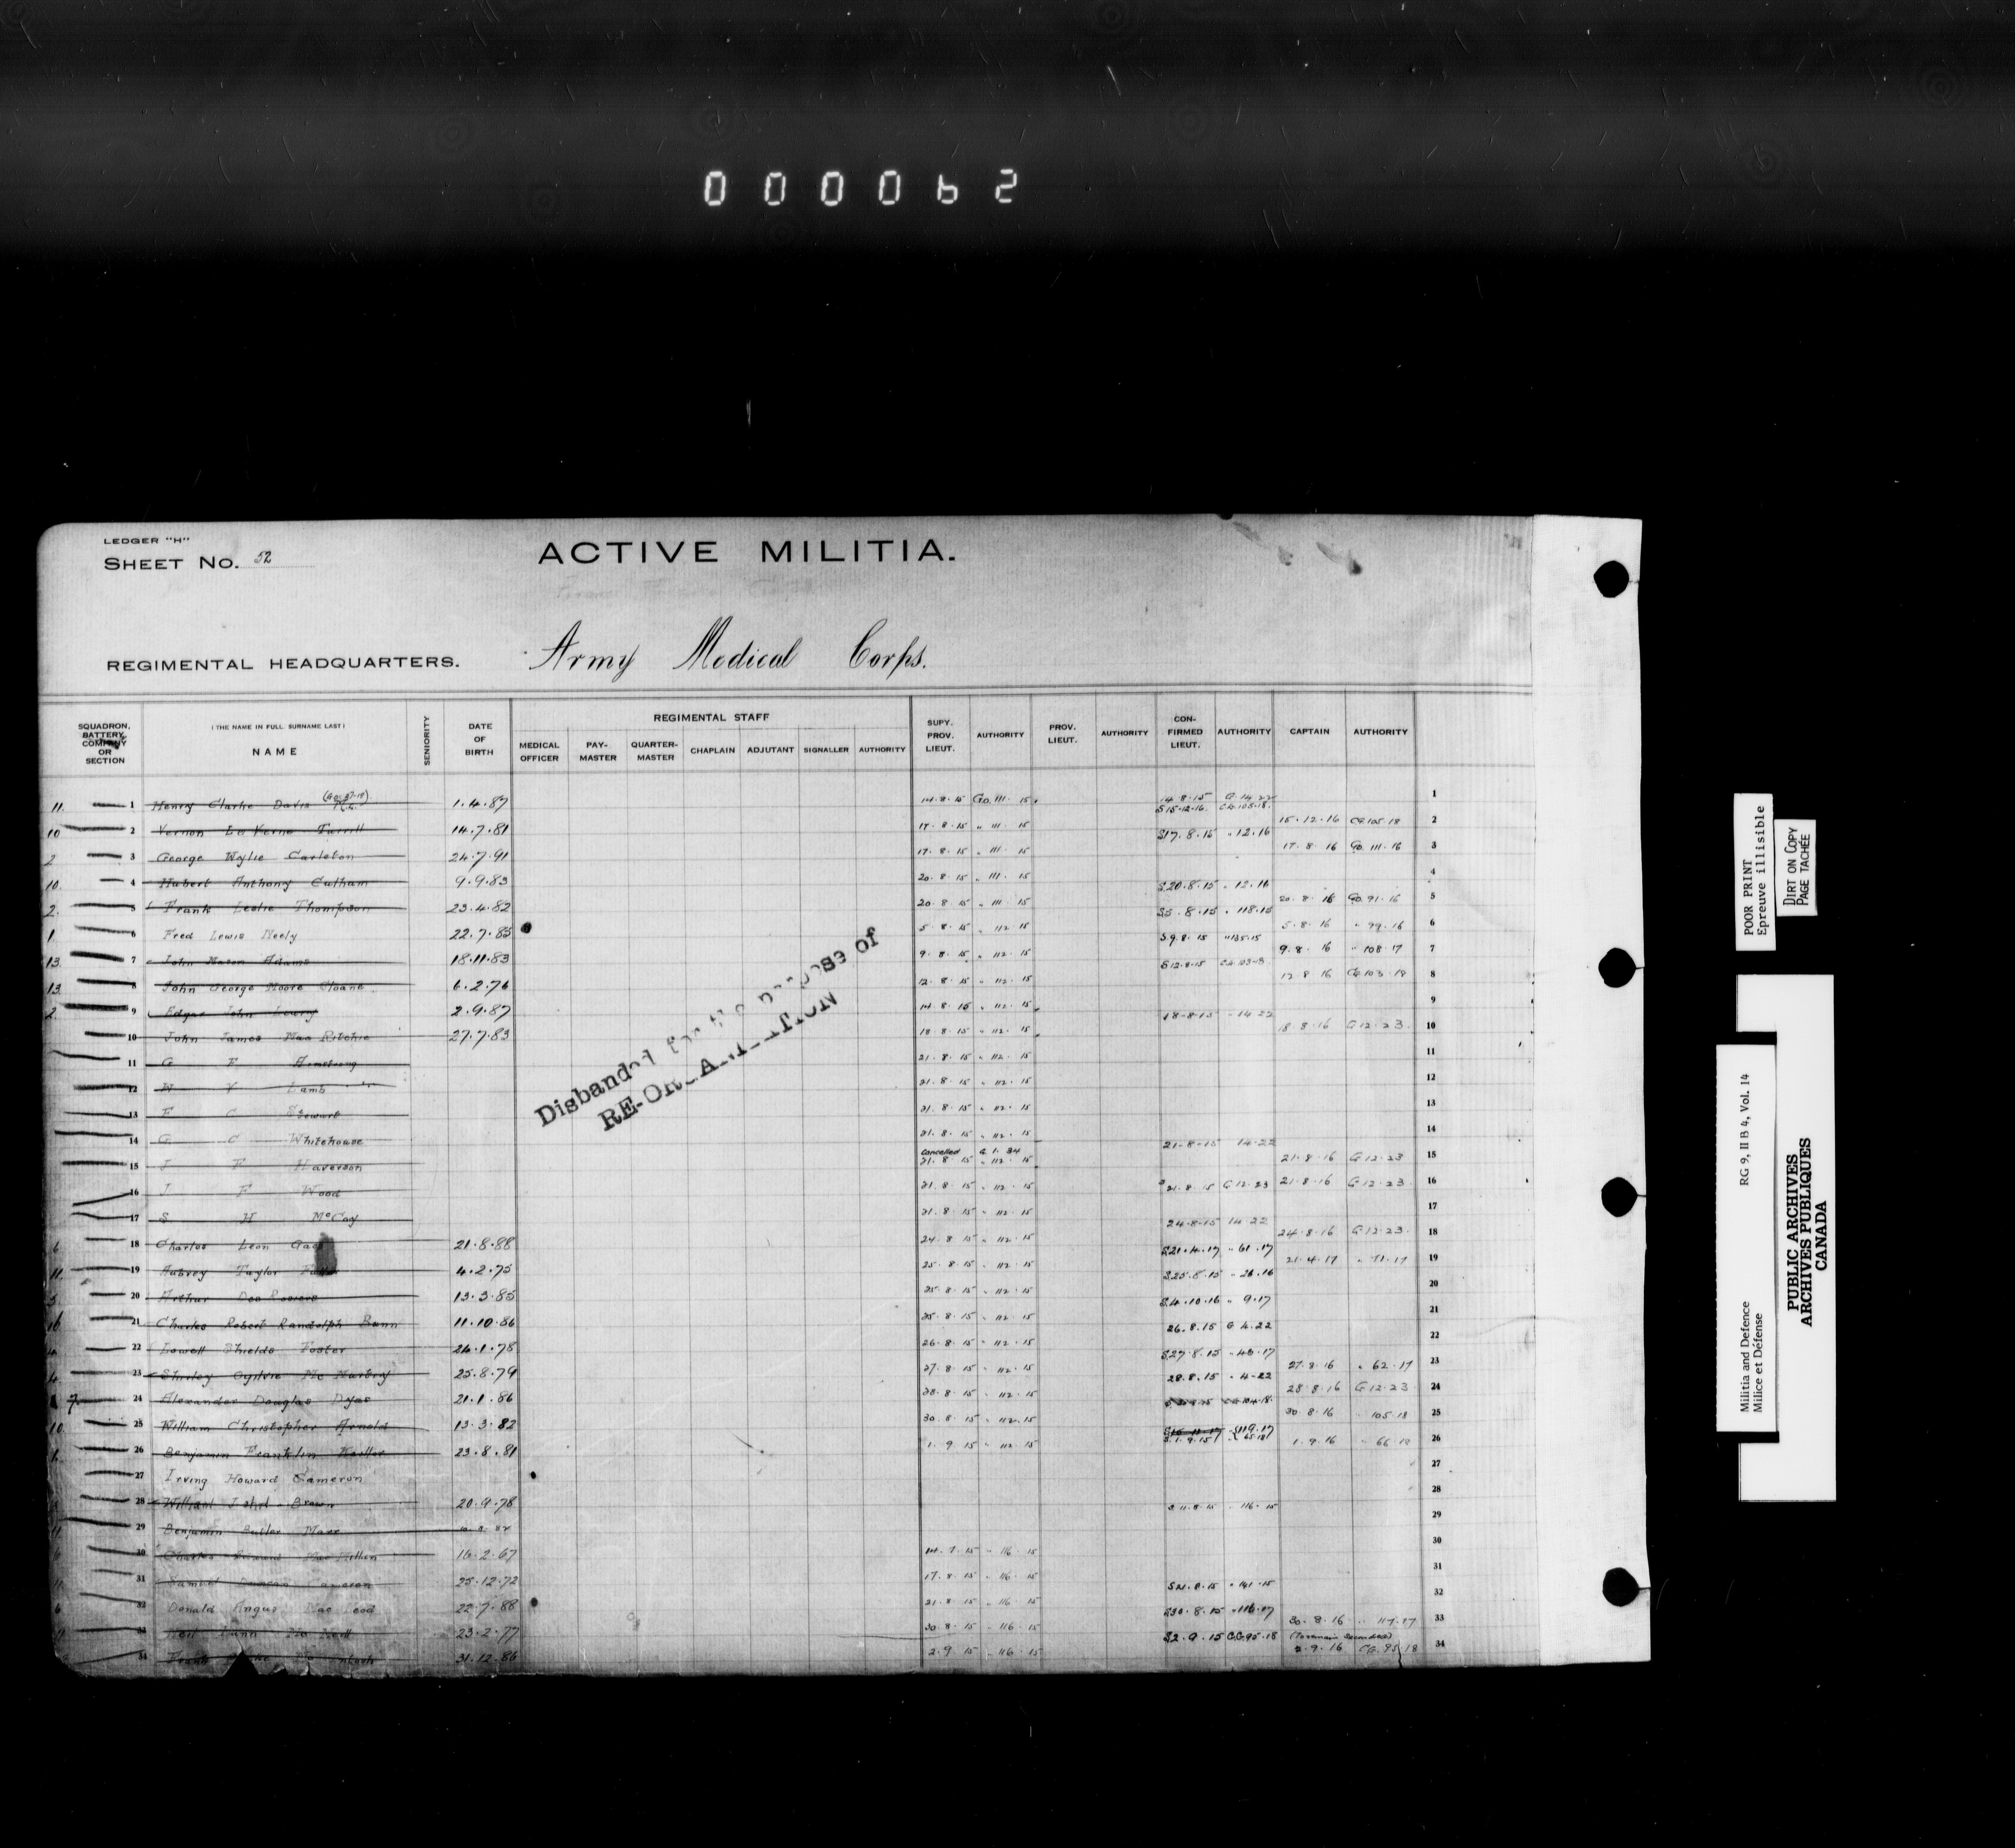 000062
LEDGER "H"
SHEET NO. 52
ACTIVE MILITIA.
REGIMENTAL HEADQUARTERS. Army Medical Corps.
SQUADRON, BATTERY, COMPANY OR SECTION
(THE NAME IN FULL SURNAME LAST)
NAME
SENIORITY
DATE OF BIRTH
REGIMENTAL STAFF
MEDICAL OFFICER PAY-MASTER QUARTER-MASTER CHAPLAIN ADJUTANT SIGNALLER AUTHORITY
SUPY. PROV. LIEUT. AUTHORITY PROV. LIEUT. AUTHORITY CON-FIRMED LIEUT. AUTHORITY CAPTAIN AUTHORITY
11. 1 Henry Clarke Davis 1.4.87 14.8.15 Go. 111. 15. 14.8.15 G.14.22 1
S15.12.16. CG.105.18.
10 2 Vernon La Verne 14.7.81 17.8.15 " 111. 15 S17.8.15 " 12.16 15.12.16 CG.105.18 2
2 3 George Wylie Carleton 24.7.91 17.8.15 " 111. 15 17.8.16 Go. 111.16 3
10. 4 Hubert Anthony Culham 9.9.83 20.8.15 " 111. 15 S20.8.15 " 12.16 4
2. 5 Frank Leslie Thompson 23.4.82 20.8.15 " 111. 15 S5.8.15 " 118.15 20.8.16 Go.91.16 5
1. 6 Fred Lewis Neely 22.7.85 5.8.15 " 112. 15 S9.8.15 "135.15 5.8.16 " 99.16 6
13. 7 John Mason Adams 18.11.83 9.8.15 " 112. 15 S12.8.15 CG.103.18 9.8.16 " 108.17 7
13. 8 John George Moore Sloane 6.2.76 12.8.15 " 112. 15 12.8.16 CG.103.18 8
2. 9 Edgar John Lowry 2.9.87 14.8.15 " 112. 15 18.8.15 " 14.22 9
10 John James Mac Ritchie 27.7.83 18.8.15 " 112. 15 18.8.16 G.12.23 10
11 G F Armstrong 21.8.15 " 112. 15 11
12 W V Lamb 21.8.15 " 112. 15 12
13 F C Stewart 21.8.15 " 112. 15 13
14 G C Whitehouse 21.8.15 " 112. 15 21.8.15 14.22 14
Cancelled G.1.34
15 J F Haverson 21.8.15 " 112. 15 21.8.16 G.12.23 15
16 J F Wood 21.8.15 " 112. 15 21.8.15 G.12.23 21.8.16 G.12.23 16
17 S H McCoy 21.8.15 " 112. 15 24.8.15 14.22 17
6 18 Charles Leon 21.8.88 24.8.15 " 112. 15 S21.4.17 " 61.17 24.8.16 G.12.23. 18
11. 19 Aubrey Taylor 4.2.75 25.8.15 " 112. 15 S25.8.15 " 26.16 21.4.17 " 71.17 19
5. 20 Arthur Des Rosiers 13.3.85 25.8.15 " 112. 15 S4.10.16 " 9.17 20
16 21 Charles Robert Randolph Bunn 11.10.86 25.8.15 " 112. 15 26.8.15 G 4.22 21
4. 22 Lowell Shields Foster 24.1.78 26.8.15 " 112. 15 S27.8.15 " 43.17 22
4. 23 Shirley Ogilvie 25.8.79 27.8.15 " 112. 15 28.8.15 " 4-22 27.8.16 " 62.17 23
7. 24 Alexander Douglas Dyas 21.1.86 28.8.15 " 112. 15 28.8.16 G.12.23 24
10. 25 William Christopher Arnold 13.3.82 30.8.15 " 112.15 30.8.16 " 105.18 25
6. 26 Benjamin Franklin 23.8.81 1.9.15 " 112. 15 S.1.9.15 1.9.16 26
27 Irving Howard Cameron 27
28 William John Brown 20.9.78 S.11.8.15 " 116. 15 28
11. 29 Benjamin Butler Marr 29
6 30 Charles Mac Millan 16.2.67 14.7.15 " 116. 15 30
11. 31 Samuel Duncan Cameron 25.12.72 17.8.15 " 116. 15 S21.8.15 " 141.15 31
6 32 Donald Angus Mac Leod 22.7.88 21.8.15 " 116. 15 S30.8.15 " 116.17 32
33 Neil Mc Neill 23.2.77 30.8.15 " 116. 15 S2.9.15 C.G.95.18 30.8.16 " 117.17 33
(To remain Seconded)
34 31.12.86 2.9.15 " 116. 15 2.9.16 CG.95.18 34
Disbanded for the purpose of
RE-ORGANIZATION
POOR PRINT
Epreuve illisible
DIRT ON COPY
PAGE TACHÉE
Militia and Defence RG 9, II B 4, Vol. 14
Milice et Défense
PUBLIC ARCHIVES
ARCHIVES PUBLIQUES
CANADA